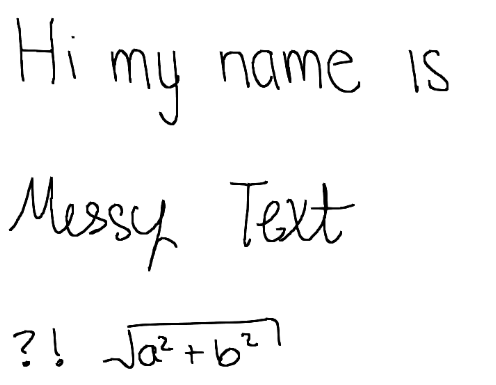 Hi my name is
Messy Text
?! √(a²+b²)